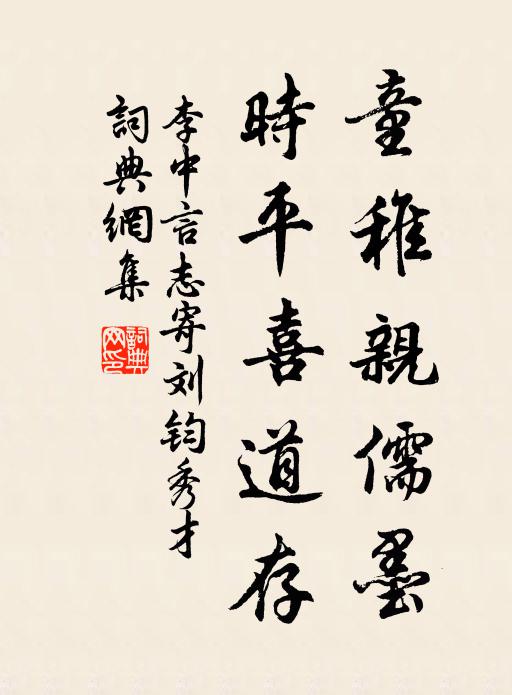 童稚親儒墨
時平喜道存
李中言志寄刘鈞秀才
詞典網集
詞典网印